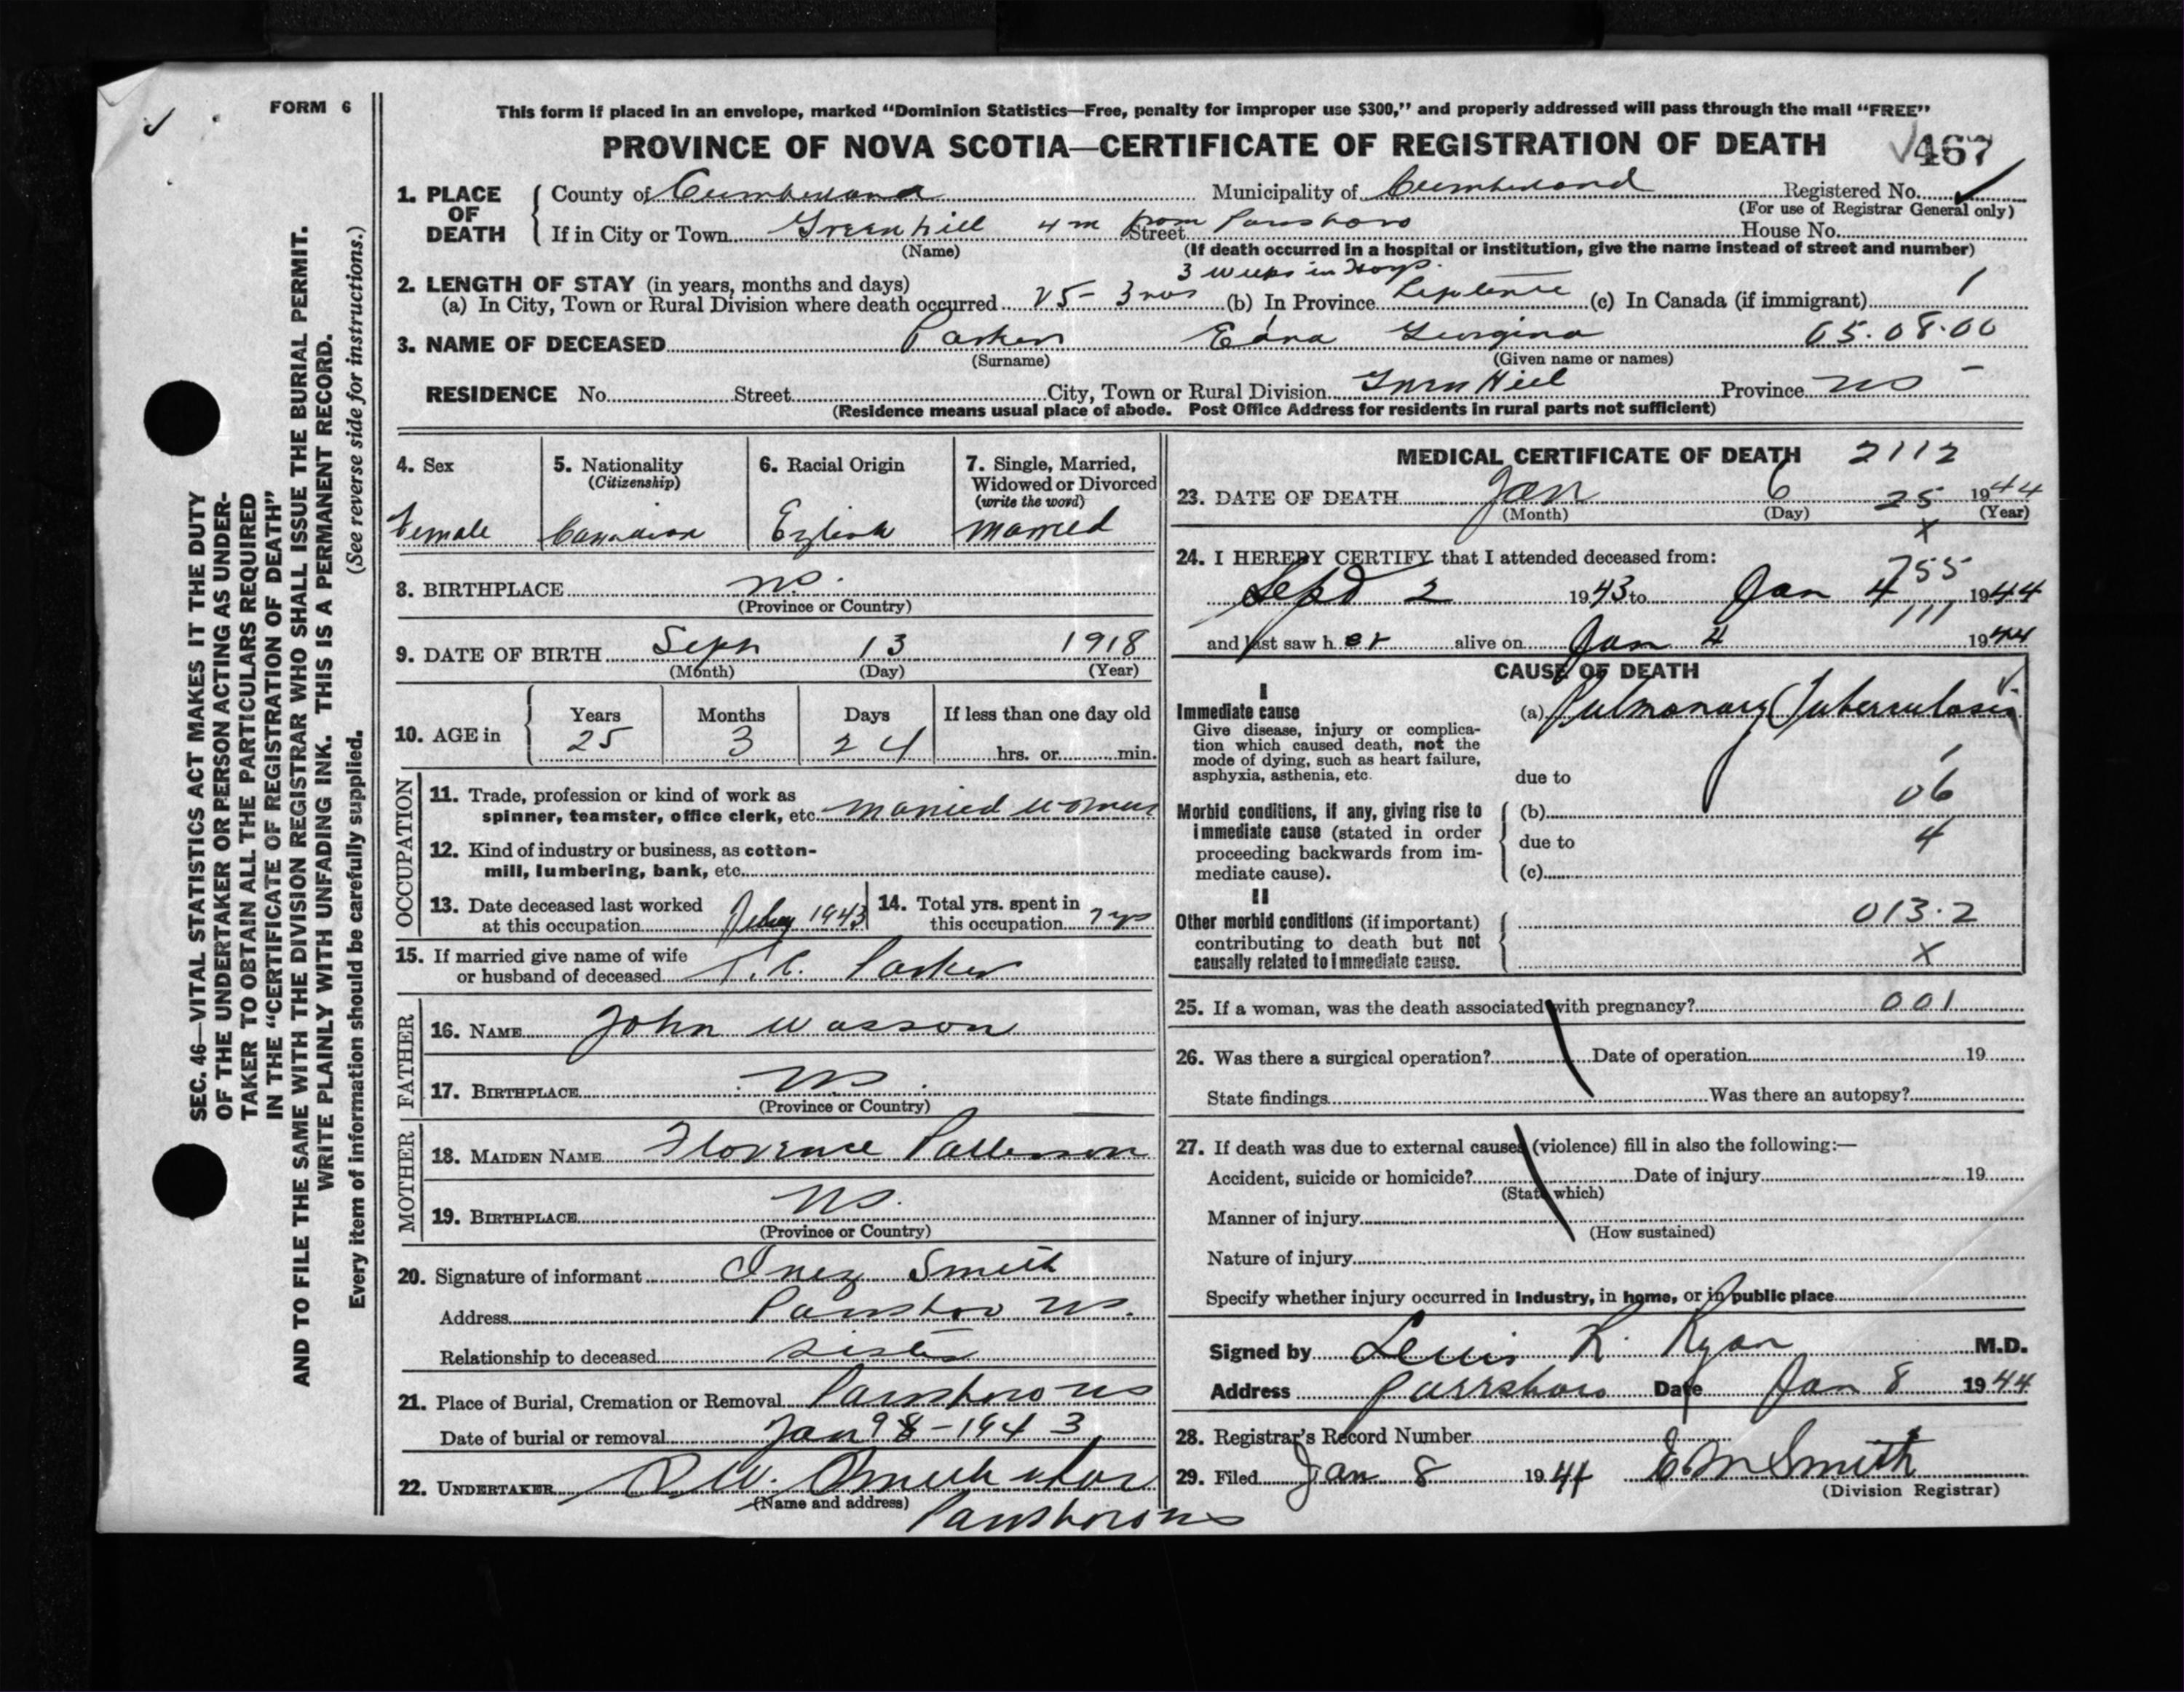 FORM 6
SEC. 46—VITAL STATISTICS ACT MAKES IT THE DUTY
OF THE UNDERTAKER OR PERSON ACTING AS UNDER-
TAKER TO OBTAIN ALL THE PARTICULARS REQUIRED
IN THE "CERTIFICATE OF REGISTRATION OF DEATH"
AND TO FILE THE SAME WITH THE DIVISION REGISTRAR WHO SHALL ISSUE THE BURIAL PERMIT.
WRITE PLAINLY WITH UNFADING INK. THIS IS A PERMANENT RECORD.
Every item of information should be carefully supplied. (See reverse side for instructions.)
This form if placed in an envelope, marked "Dominion Statistics—Free, penalty for improper use $300," and properly addressed will pass through the mail "FREE"
PROVINCE OF NOVA SCOTIA—CERTIFICATE OF REGISTRATION OF DEATH 467
1. PLACE OF DEATH
County of Cumberland Municipality of Cumberland Registered No.
(For use of Registrar General only)
If in City or Town Greenhill 4 m from Street Parrsboro House No.
(Name) (If death occurred in a hospital or institution, give the name instead of street and number)
3 weeks in Hosp.
2. LENGTH OF STAY (in years, months and days)
(a) In City, Town or Rural Division where death occurred 25 - 3 mos (b) In Province Lifetime (c) In Canada (if immigrant) 1
3. NAME OF DECEASED Parker Edna Georgina 05.08.00
(Surname) (Given name or names)
RESIDENCE No. Street City, Town or Rural Division Green Hill Province NS
(Residence means usual place of abode. Post Office Address for residents in rural parts not sufficient)
4. Sex
Female
5. Nationality
(Citizenship)
Canadian
6. Racial Origin
English
7. Single, Married,
Widowed or Divorced
(write the word)
Married
8. BIRTHPLACE NS.
(Province or Country)
9. DATE OF BIRTH Sept 13 1918
(Month) (Day) (Year)
10. AGE in
Years Months Days If less than one day old
25 3 24 hrs. or min.
OCCUPATION
11. Trade, profession or kind of work as
spinner, teamster, office clerk, etc. Married woman
12. Kind of industry or business, as cotton-
mill, lumbering, bank, etc.
13. Date deceased last worked
at this occupation 1943
14. Total yrs. spent in
this occupation 7 yrs
15. If married give name of wife
or husband of deceased Parker
FATHER
16. NAME John Wasson
17. BIRTHPLACE NS
(Province or Country)
MOTHER
18. MAIDEN NAME Florence Patterson
19. BIRTHPLACE NS.
(Province or Country)
20. Signature of informant Inez Smith
Address Parrsboro NS.
Relationship to deceased sister
21. Place of Burial, Cremation or Removal Parrsboro NS
Date of burial or removal Jan 9 8 - 1943
22. UNDERTAKER Smith
(Name and address) Parrsboro NS
MEDICAL CERTIFICATE OF DEATH 2112
23. DATE OF DEATH Jan 6 25 1944
(Month) (Day) (Year)
X
24. I HEREBY CERTIFY that I attended deceased from:
755
Sept 2 1943 to Jan 4 1944
111
and last saw her alive on Jan 4 1944
CAUSE OF DEATH
I
Immediate cause
Give disease, injury or complica-
tion which caused death, not the
mode of dying, such as heart failure,
asphyxia, asthenia, etc.
(a) Pulmonary Tuberculosis
due to
06
Morbid conditions, if any, giving rise to
immediate cause (stated in order
proceeding backwards from im-
mediate cause).
(b)
due to 4
(c)
II
Other morbid conditions (if important)
contributing to death but not
causally related to immediate cause.
013.2
X
25. If a woman, was the death associated with pregnancy? 001
26. Was there a surgical operation? Date of operation 19
State findings Was there an autopsy?
27. If death was due to external causes (violence) fill in also the following:—
Accident, suicide or homicide? Date of injury 19
(State which)
Manner of injury
(How sustained)
Nature of injury
Specify whether injury occurred in industry, in home, or in public place
Signed by Lewis R. Ryan M.D.
Address Parrsboro Date Jan 8 1944
28. Registrar's Record Number
29. Filed Jan 8 1944 E M Smith
(Division Registrar)